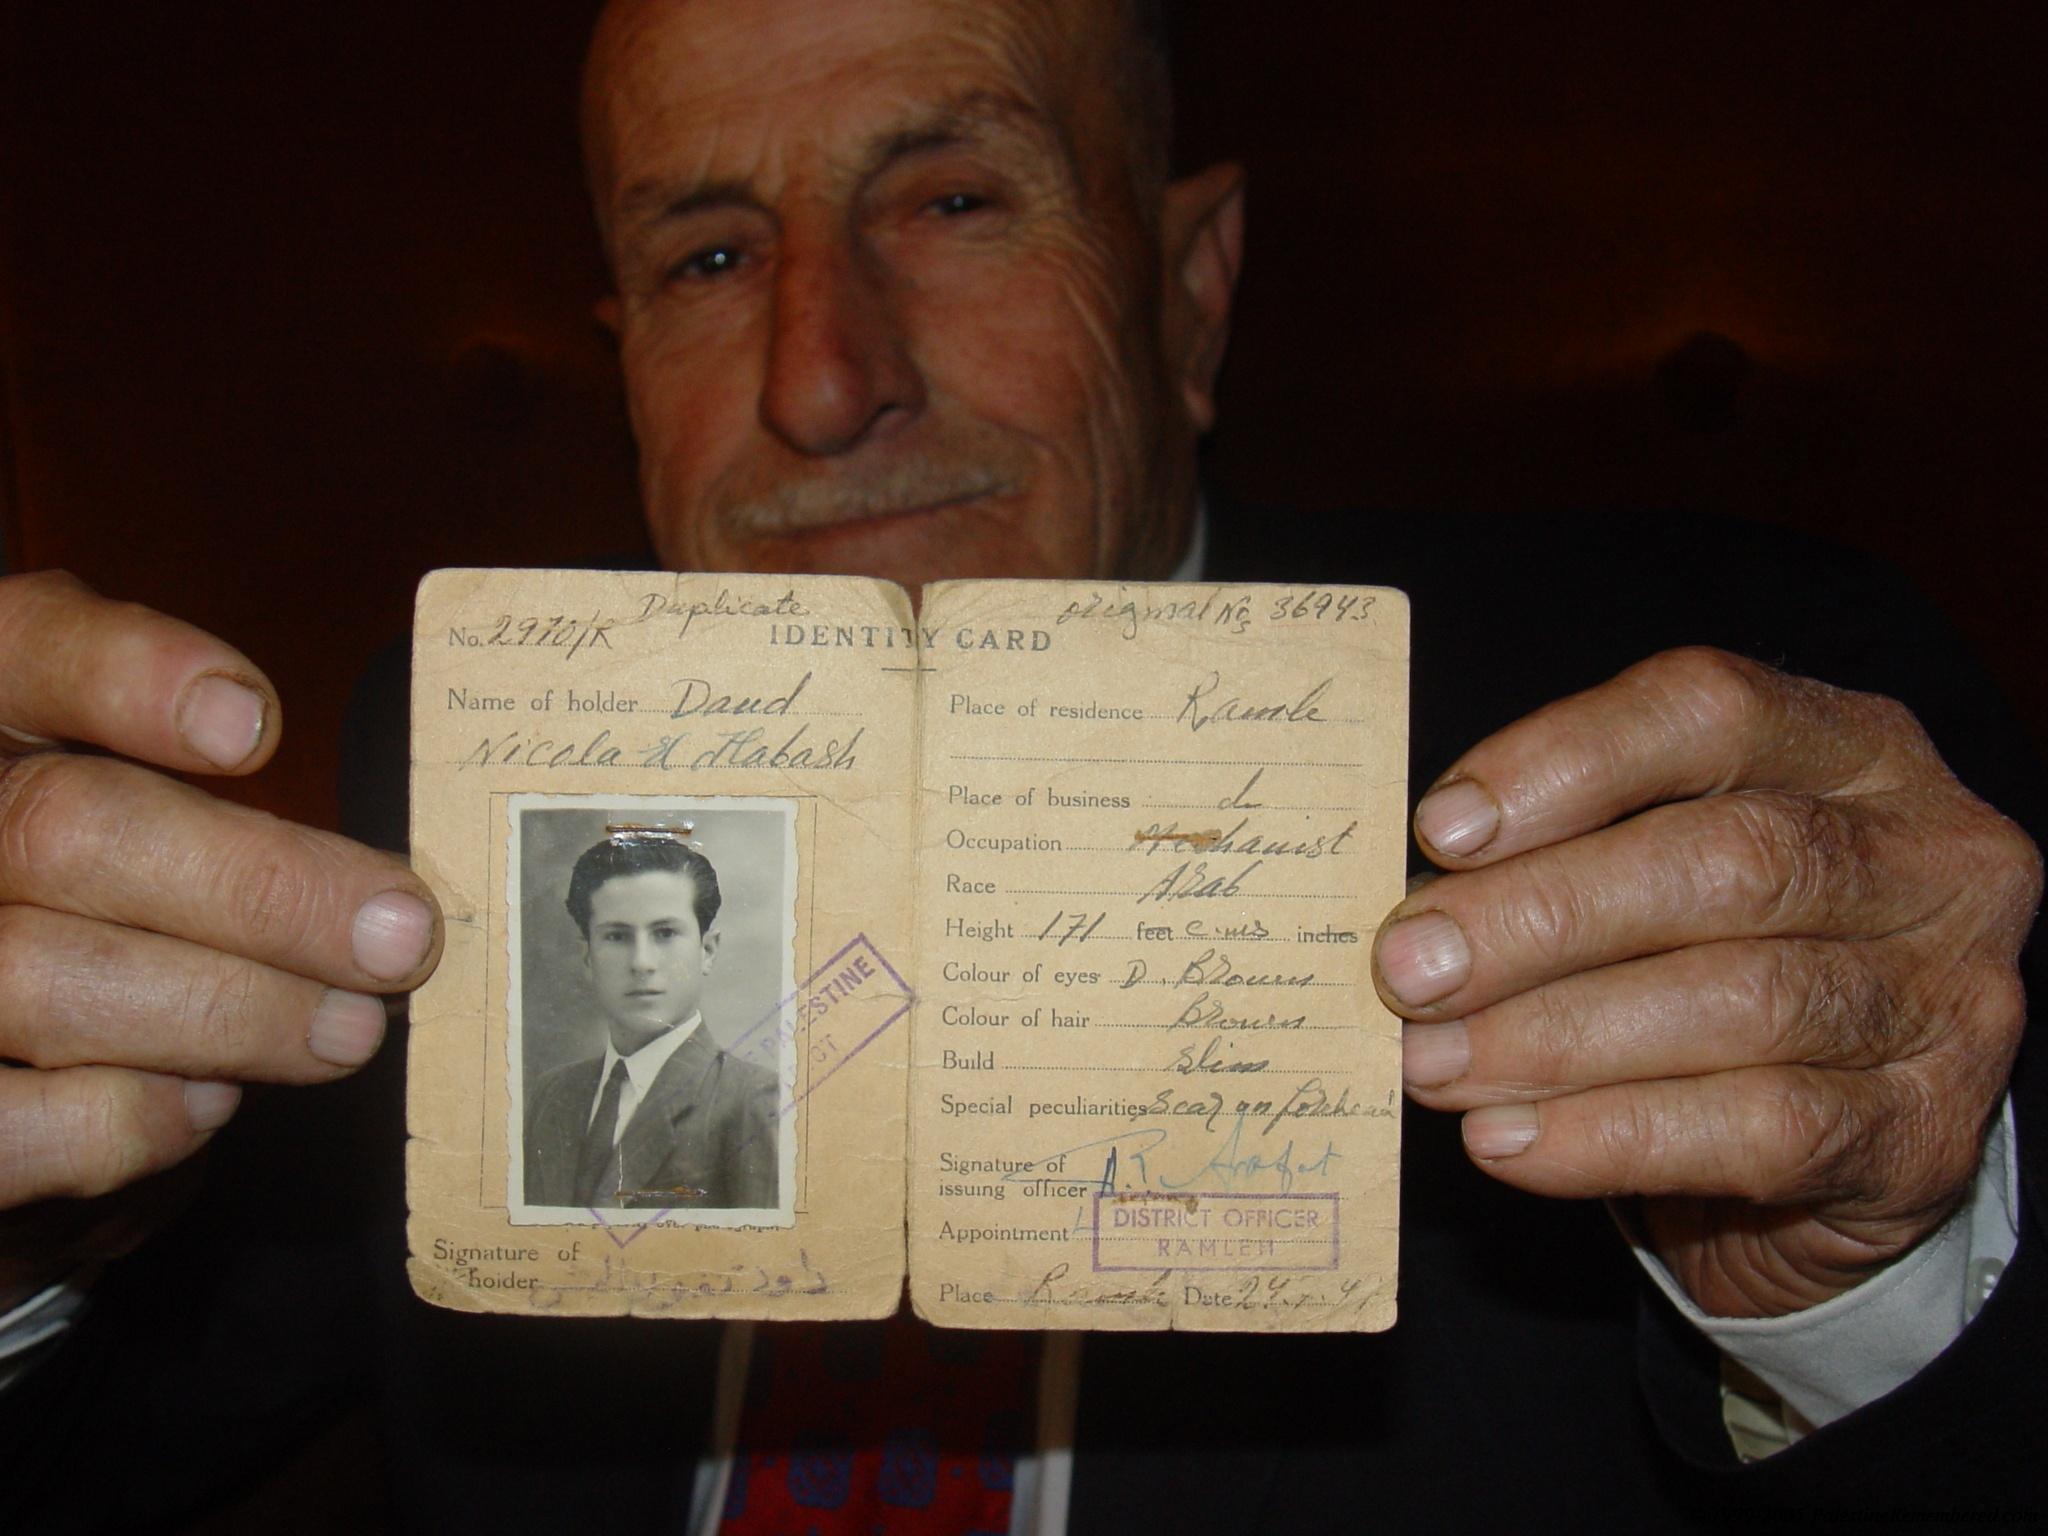 Duplicate
No. 2970/R
IDENTITY CARD
Name of holder Daud
Nicola H Habash
PALESTINE
CT
Signature of
holder
original No 36943
Place of residence Ramle
Place of business do
Occupation Mechanist
Race Arab
Height 171 feet c.ms inches
Colour of eyes D. Brown
Colour of hair Brown
Build Slim
Special peculiarities Scar on forehead
Signature of
issuing officer R. Arafat
Appointment DISTRICT OFFICER
RAMLEH
Place Ramle Date
PalestineRemembered.com